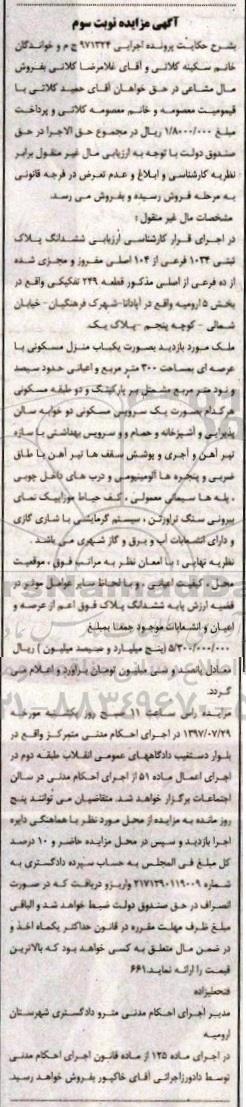 آگهی مزایده نوبت سوم
بشرح حکایت پرونده اجرایی ۹۷۱۳۲۴ ج م و خواندگان
خانم سکینه کلاتی و آقای غلامرضا کلاتی بفروش
مال مشاعی در حق خواهان آقای حمید کلاتی با
قیمومیت معصومه و خانم معصومه کلاتی و پرداخت
مبلغ ۱/۸۰۰۰/۰۰۰ ریال در مجموع حق الاجرا در حق
صندوق دولت با توجه به ارزیابی مال غیر منقول برابر
نظریه کارشناسی و ابلاغ و عدم تعرض در فرجه قانونی
به مرحله فروش رسیده و بفروش می رسد.
مشخصات مال غیر منقول :
در اجرای قرار کارشناسی ارزیابی ششدانگ پلاک
ثبتی ۱۰۳۴ فرعی از ۱۰۴ اصلی مفروز و مجزی شده
از ده فرعی از اصلی مذکور قطعه ۲۴۹ تفکیکی واقع در
بخش ۵ ارومیه واقع در آپادانا-شهرک فرهنگیان- خیابان
شمالی - کوچه پنجم -پلاک یک.
ملک مورد بازدید بصورت یکباب منزل مسکونی با
عرصه ای بمساحت ۳۰۰ متر مربع و اعیانی حدود سیصد
و نود متر مربع مشتمل بر پارکینگ و دو طبقه مسکونی
هرکدام بصورت یک سرویس مسکونی دو خوابه سالن
پذیرایی و آشپزخانه و حمام و و سرویس بهداشتی با سازه
تیر آهن و آجری و پوشش سقف ها تیر آهن با طاق
ضربی و پنجره ها آلومینیومی و درب های داخل چوبی
، پله ها سیمانی معمولی ، کف حیاط موزاییک نمای
بیرونی سنگ تراورتن ، سیستم گرمایشی با شاری گازی
و دارای انشعابات آب و برق و گاز شهری می باشد .
نظریه نهایی : با امعان نظر به مراتب فوق ، موقعیت
محل ، کیفیت اعیانی ، و با لحاظ سایر عوامل موثر در
قضیه ارزش پایه ششدانگ پلاک فوق اعم از عرصه و
اعیان و انشعابات موجود جمعا بمبلغ
۵/۳۰۰/۰۰۰/۰۰۰ (پنج میلیارد و سیصد میلیون ) ریال
معادل پانصد و سی میلیون تومان برآورد و اعلام می
گردد.
مزایده راس ساعت ۱۱ صبح روز یکشنبه مورخه
۱۳۹۷/۰۷/۲۹ در اجرای احکام مدنی متمرکز واقع در
بلوار دستغیب دادگاههای عمومی انقلاب طبقه دوم در
اجرای اعمال ماده ۵۱ از اجرای احکام مدنی در سالن
اجتماعات برگزار خواهد شد. متقاضیان می توانند پنج
روز مانده به مزایده از محل مورد نظر با هماهنگی دایره
اجرا بازدید و سپس در محل مزایده حاضر و ۱۰ درصد
کل مبلغ فی المجلس به حساب سپرده دادگستری به
شماره ۲۱۷۱۳۹۰۱۱۹۰۰۹ واریزو دریافت که در صورت
انصراف در حق صندوق دولت ضبط خواهد شد و الباقی
مبلغ ظرف مهلت مقرره در قانون حداکثر یکماه اخذ و
در ضمن مال متعلق به کسی خواهد بود که بالاترین
قیمت را ارائه نماید.۶۶۱
فتحعلیزاده
مدیر اجرای احکام مدنی مترو دادگستری شهرستان
ارومیه
در اجرای ماده ۱۲۵ از ماده قانون اجرای احکام مدنی
توسط دادورزاجرائی آقای خاکپور بفروش خواهد رسید.